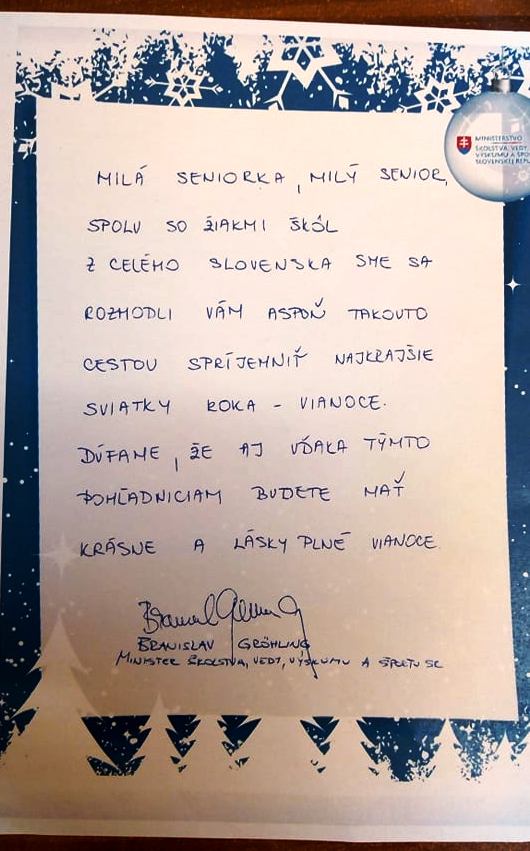 MINISTERSTVO
ŠKOLSTVA, VEDY,
VÝSKUMU A ŠPO
SLOVENSKEJ REPU
MILÁ SENIORKA, MILÝ SENIOR,
SPOLU SO ŽIAKMI ŠKÔL
Z CELÉHO SLOVENSKA SME SA
ROZHODLI VÁM ASPOŇ TAKOUTO
CESTOU SPRÍJEMNIŤ NAJKRAJŠIE
SVIATKY ROKA - VIANOCE.
DÚFAME, ŽE AJ VĎAKA TÝMTO
POHĽADNICIAM BUDETE MAŤ
KRÁSNE A LÁSKY PLNÉ VIANOCE.
BRANISLAV GRÖHLING
MINISTER ŠKOLSTVA, VEDY, VÝSKUMU A ŠPORTU SR